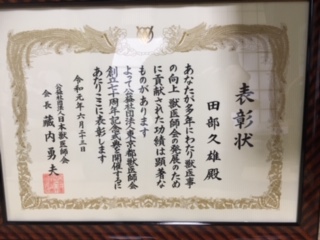 表彰状
田部久雄殿
あなたが多年にわたり獣医事
の向上 獣医師会の発展のため
に貢献された功績は顕著な
ものがあります
よって公益社団法人東京都獣医師会
創立七十周年記念式典を開催するに
あたりここに表彰します
令和元年六月二十三日
公益社団法人日本獣医師会
会長 藏内勇夫